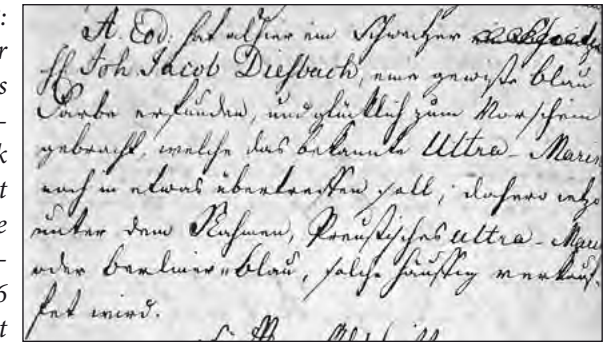 :
r
s
–
k
t
e
–
6
t
A. Eod: hat alhier ein Schweitzer
H Joh Jacob Diesbach, eine gewiße blau
Farbe erfunden, und glücklich zum Vorschein
gebracht, welche das bekannte Ultra-Marin
noch in etwas übertreffen soll, dahero ietzo
unter dem Nahmen, Preußisches ultra-Mari
oder berliner-blau, solche häuffig verkauf-
fet wird.